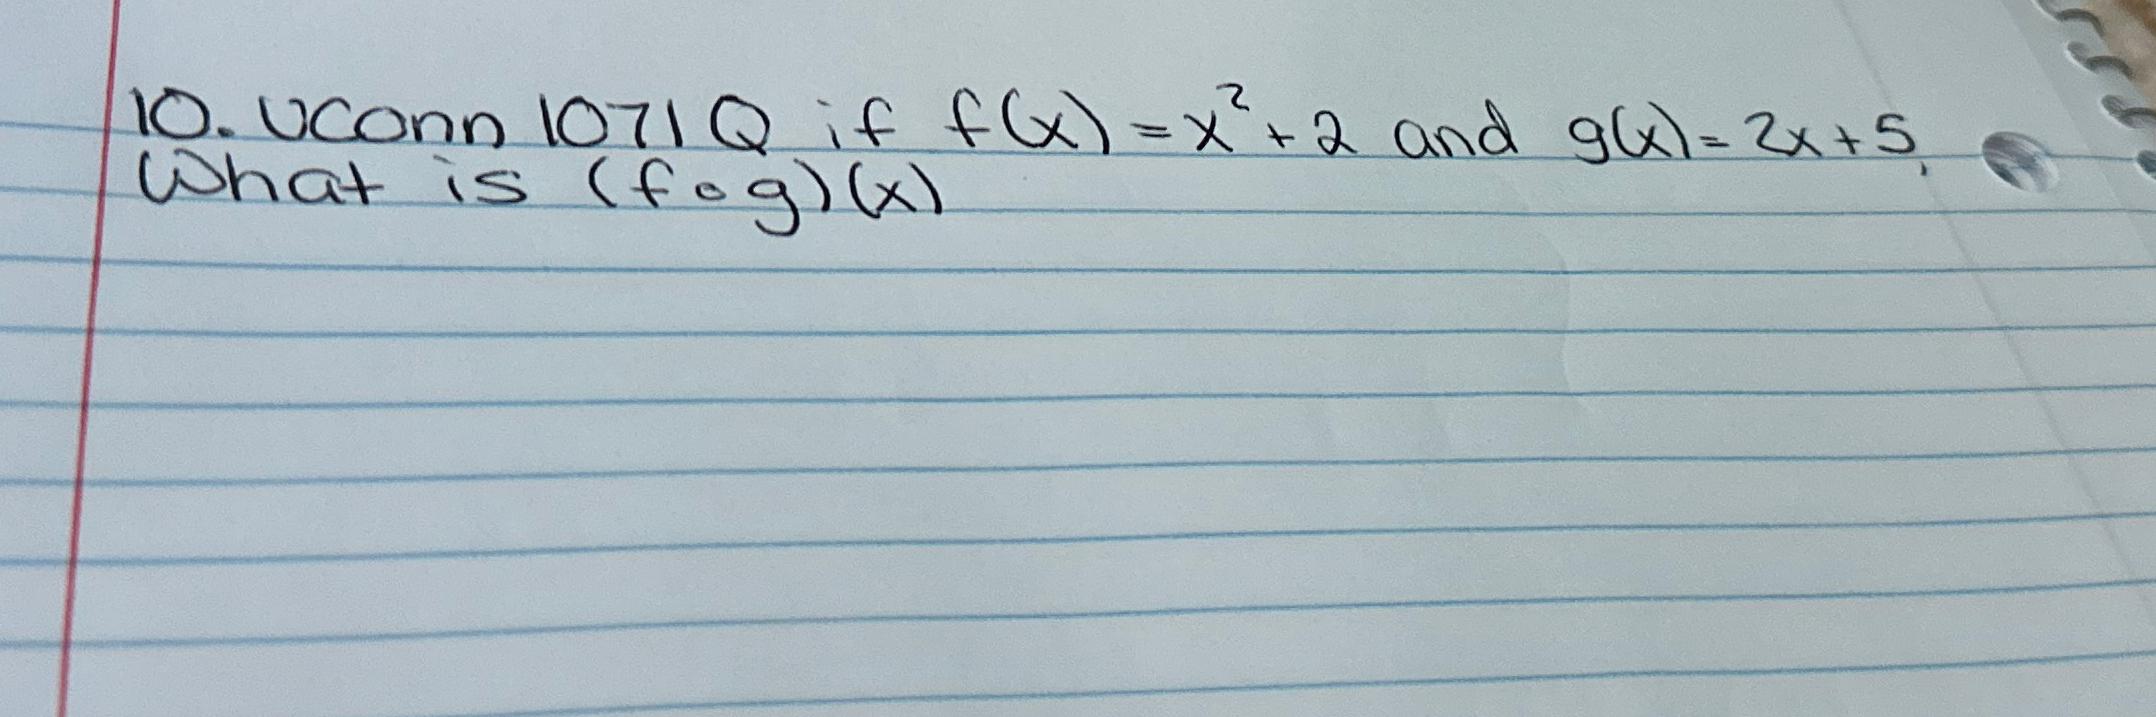 10. UConn 1071Q if f(x) = x² + 2 and g(x) = 2x + 5,
What is (f∘g)(x)